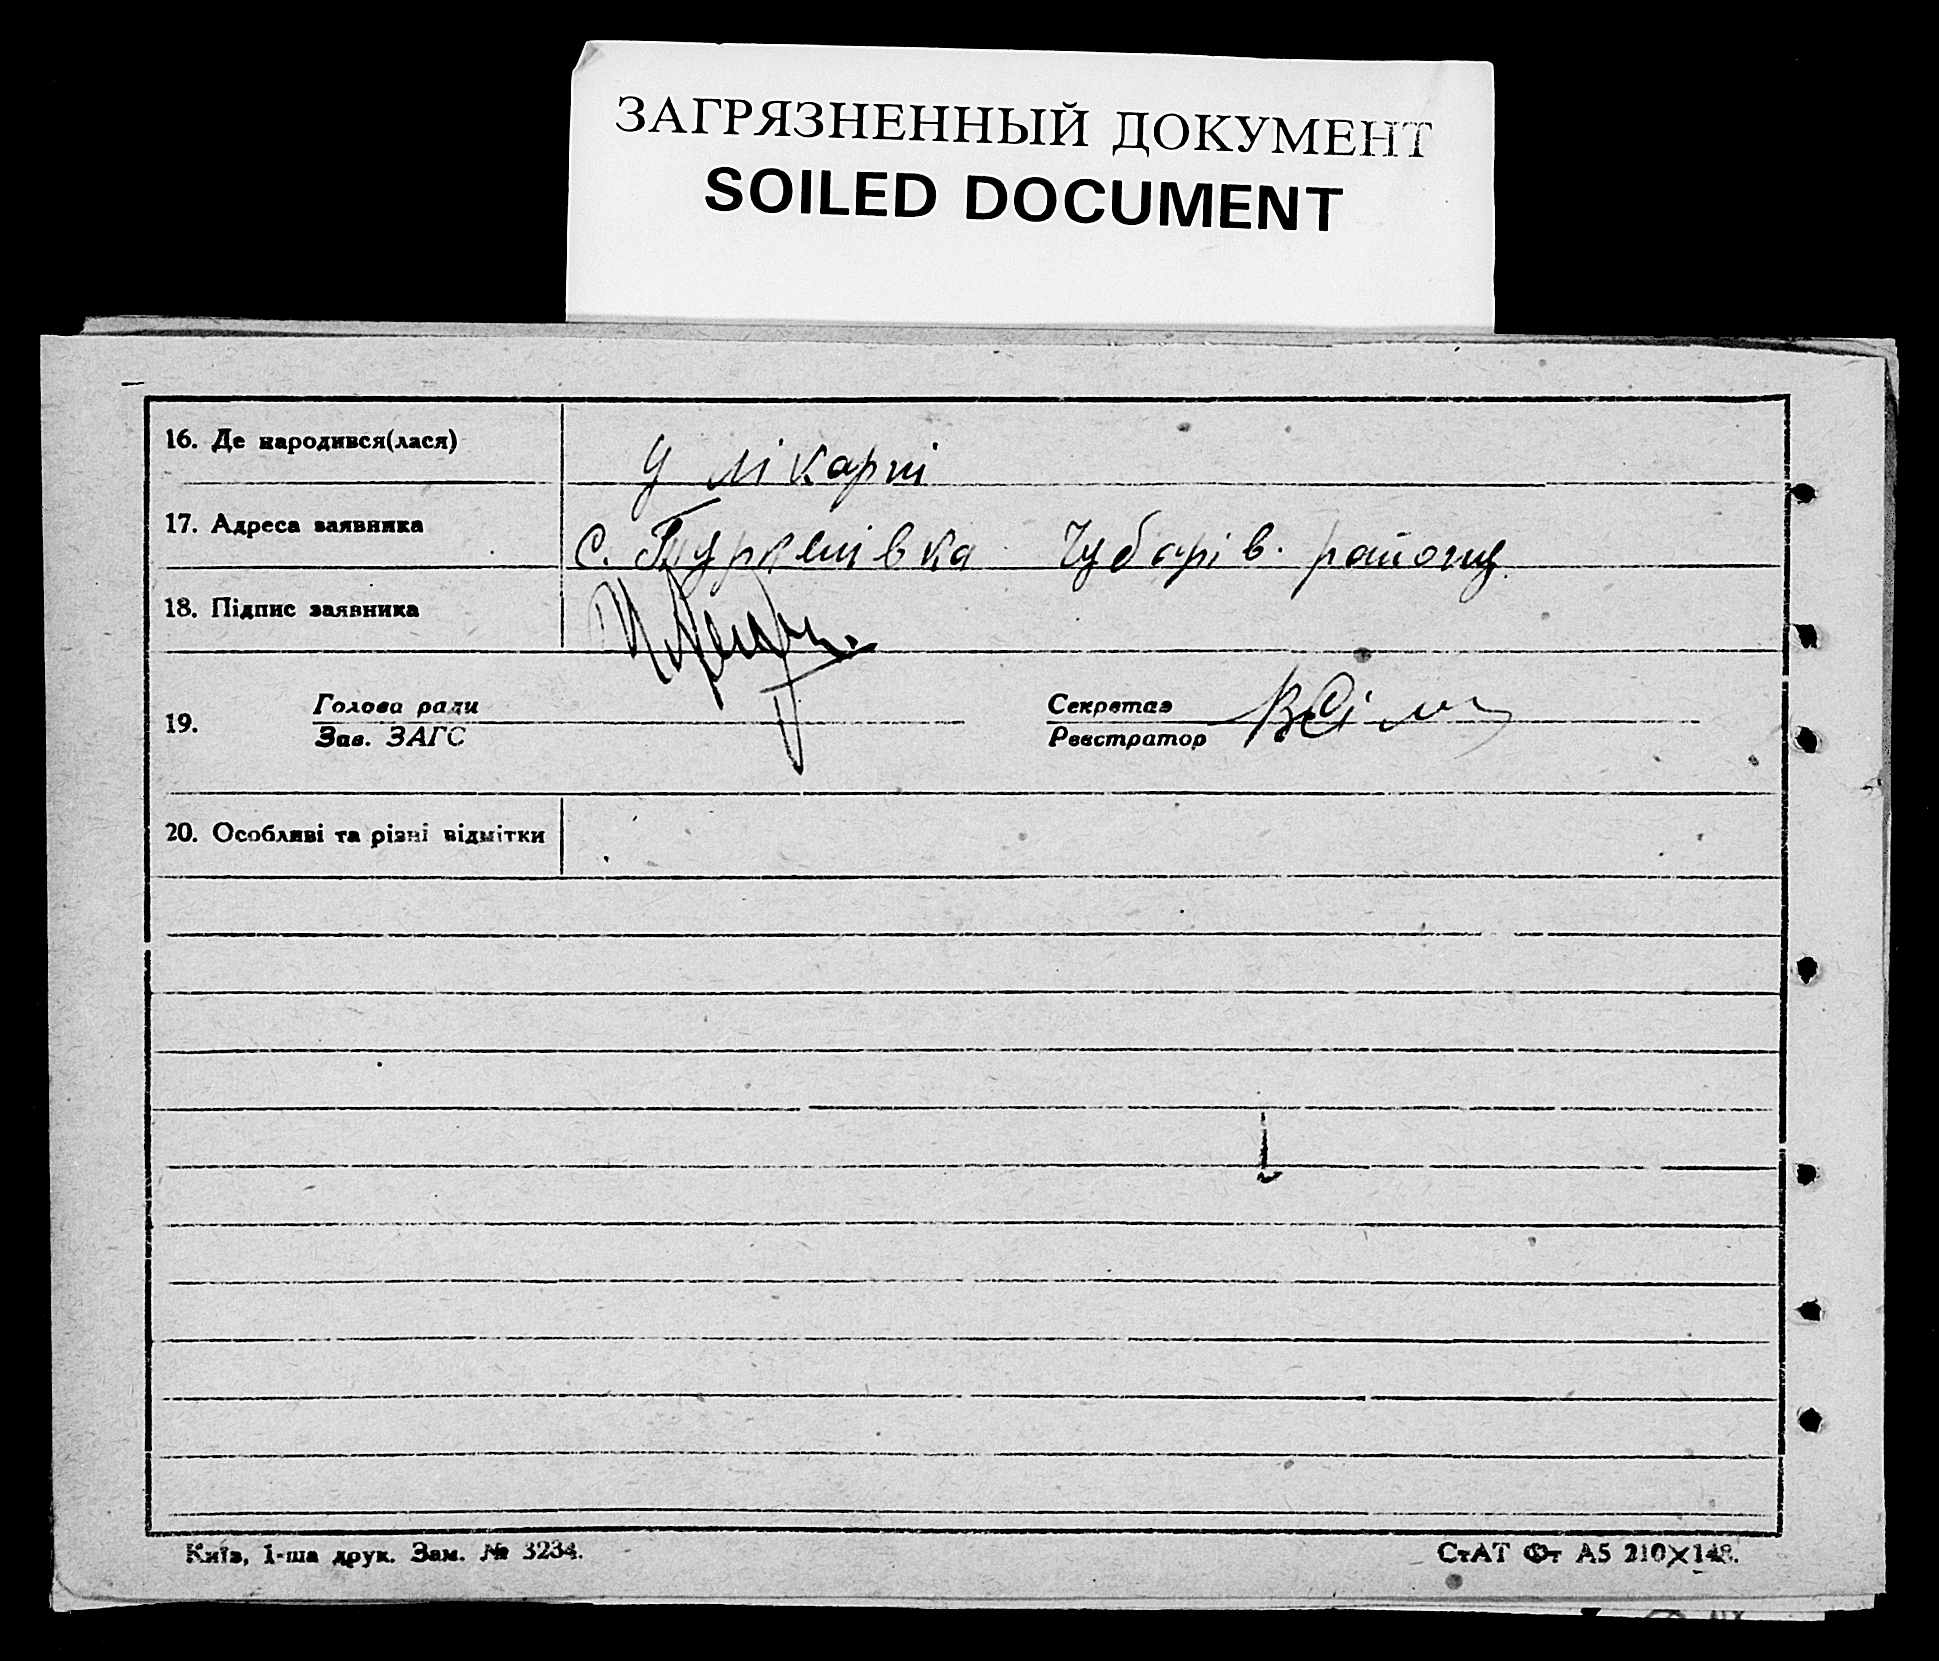 ЗАГРЯЗНЕННЫЙ ДОКУМЕНТ
SOILED DOCUMENT
16. Де народився(лася)
У лікарні
17. Адреса заявника
с. Туркенівка Чубарів. району
18. Підпис заявника
19.
Голова ради
Зав. ЗАГС
Секретар
Реєстратор
20. Особливі та різні відмітки
Київ, 1-ша друк. Зам. № 3234.
СтАТ Фт А5 210×148.